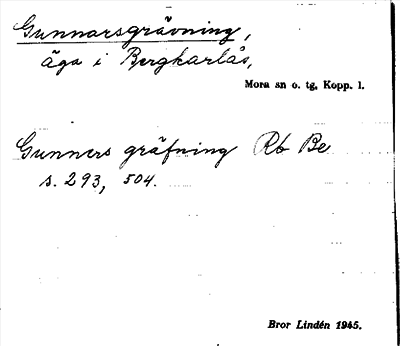 Gunnarsgrävning,
äga i Bergkarlås,
Mora sn o. tg, Kopp. l.
Gunners gräfning Rb Be
s. 293, 504.
Bror Lindén 1945.